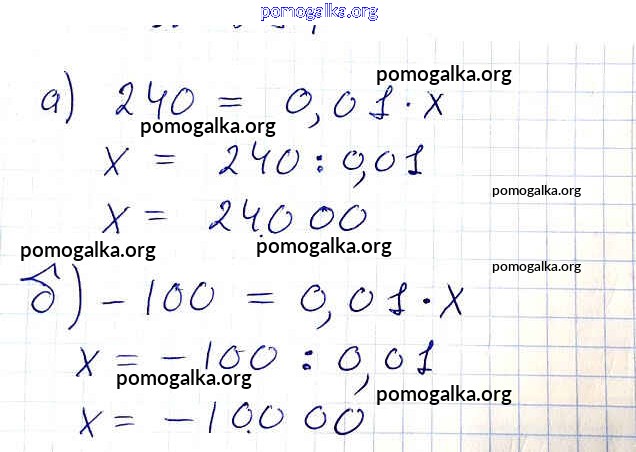 pomogalka.org
pomogalka.org
а) 240 = 0,01·x
pomogalka.org
x = 240 : 0,01
pomogalka.org
x = 24000
pomogalka.org
pomogalka.org
pomogalka.org
б) -100 = 0,01·x
x = -100 : 0,01
pomogalka.org
pomogalka.org
x = -10000